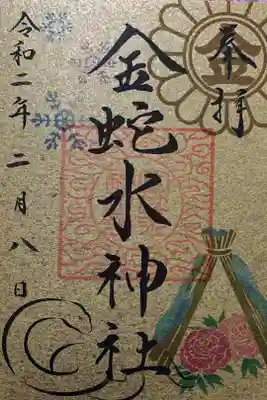 奉拝
金
金蛇水神社
令和二年二月八日